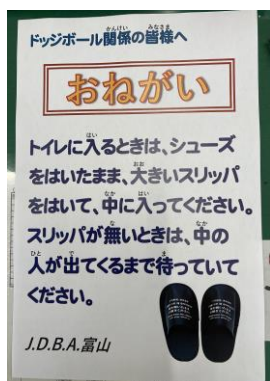 ドッジボール関係の皆様へ
おねがい
トイレに入るときは、シューズ
をはいたまま、大きいスリッパ
をはいて、中に入ってください。
スリッパが無いときは、中の
人が出てくるまで待っていて
ください。
J.D.B.A.富山